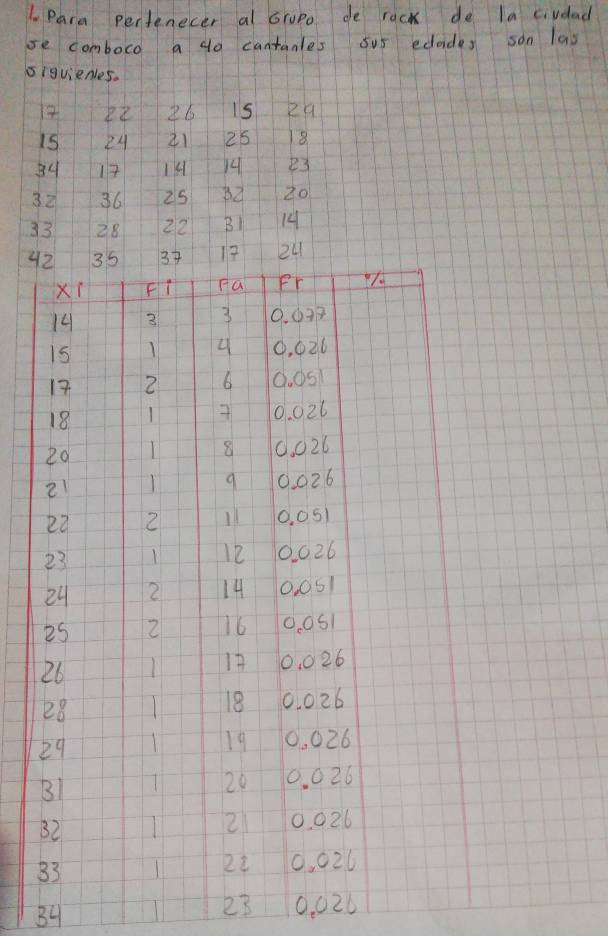 1. Para pertenecer al Grupo de rock de la ciudad
se comboco a 40 cantantes sus edades son las
siguientes.
17 22 26 15 29
15 24 21 25 18
34 17 14 14 23
32 36 25 32 20
33 28 22 31 14
42 35 37 17 24
Xi Fi Fa Fr %
14 3 3 0.077
15 1 4 0.026
17 2 6 0.051
18 1 7 0.026
20 1 8 0.026
21 1 9 0.026
22 2 11 0.051
23 1 12 0.026
24 2 14 0.051
25 2 16 0.051
26 1 17 0.026
28 1 18 0.026
29 1 19 0.026
31 1 20 0.026
32 1 21 0.026
33 1 22 0.026
34 1 23 0.026